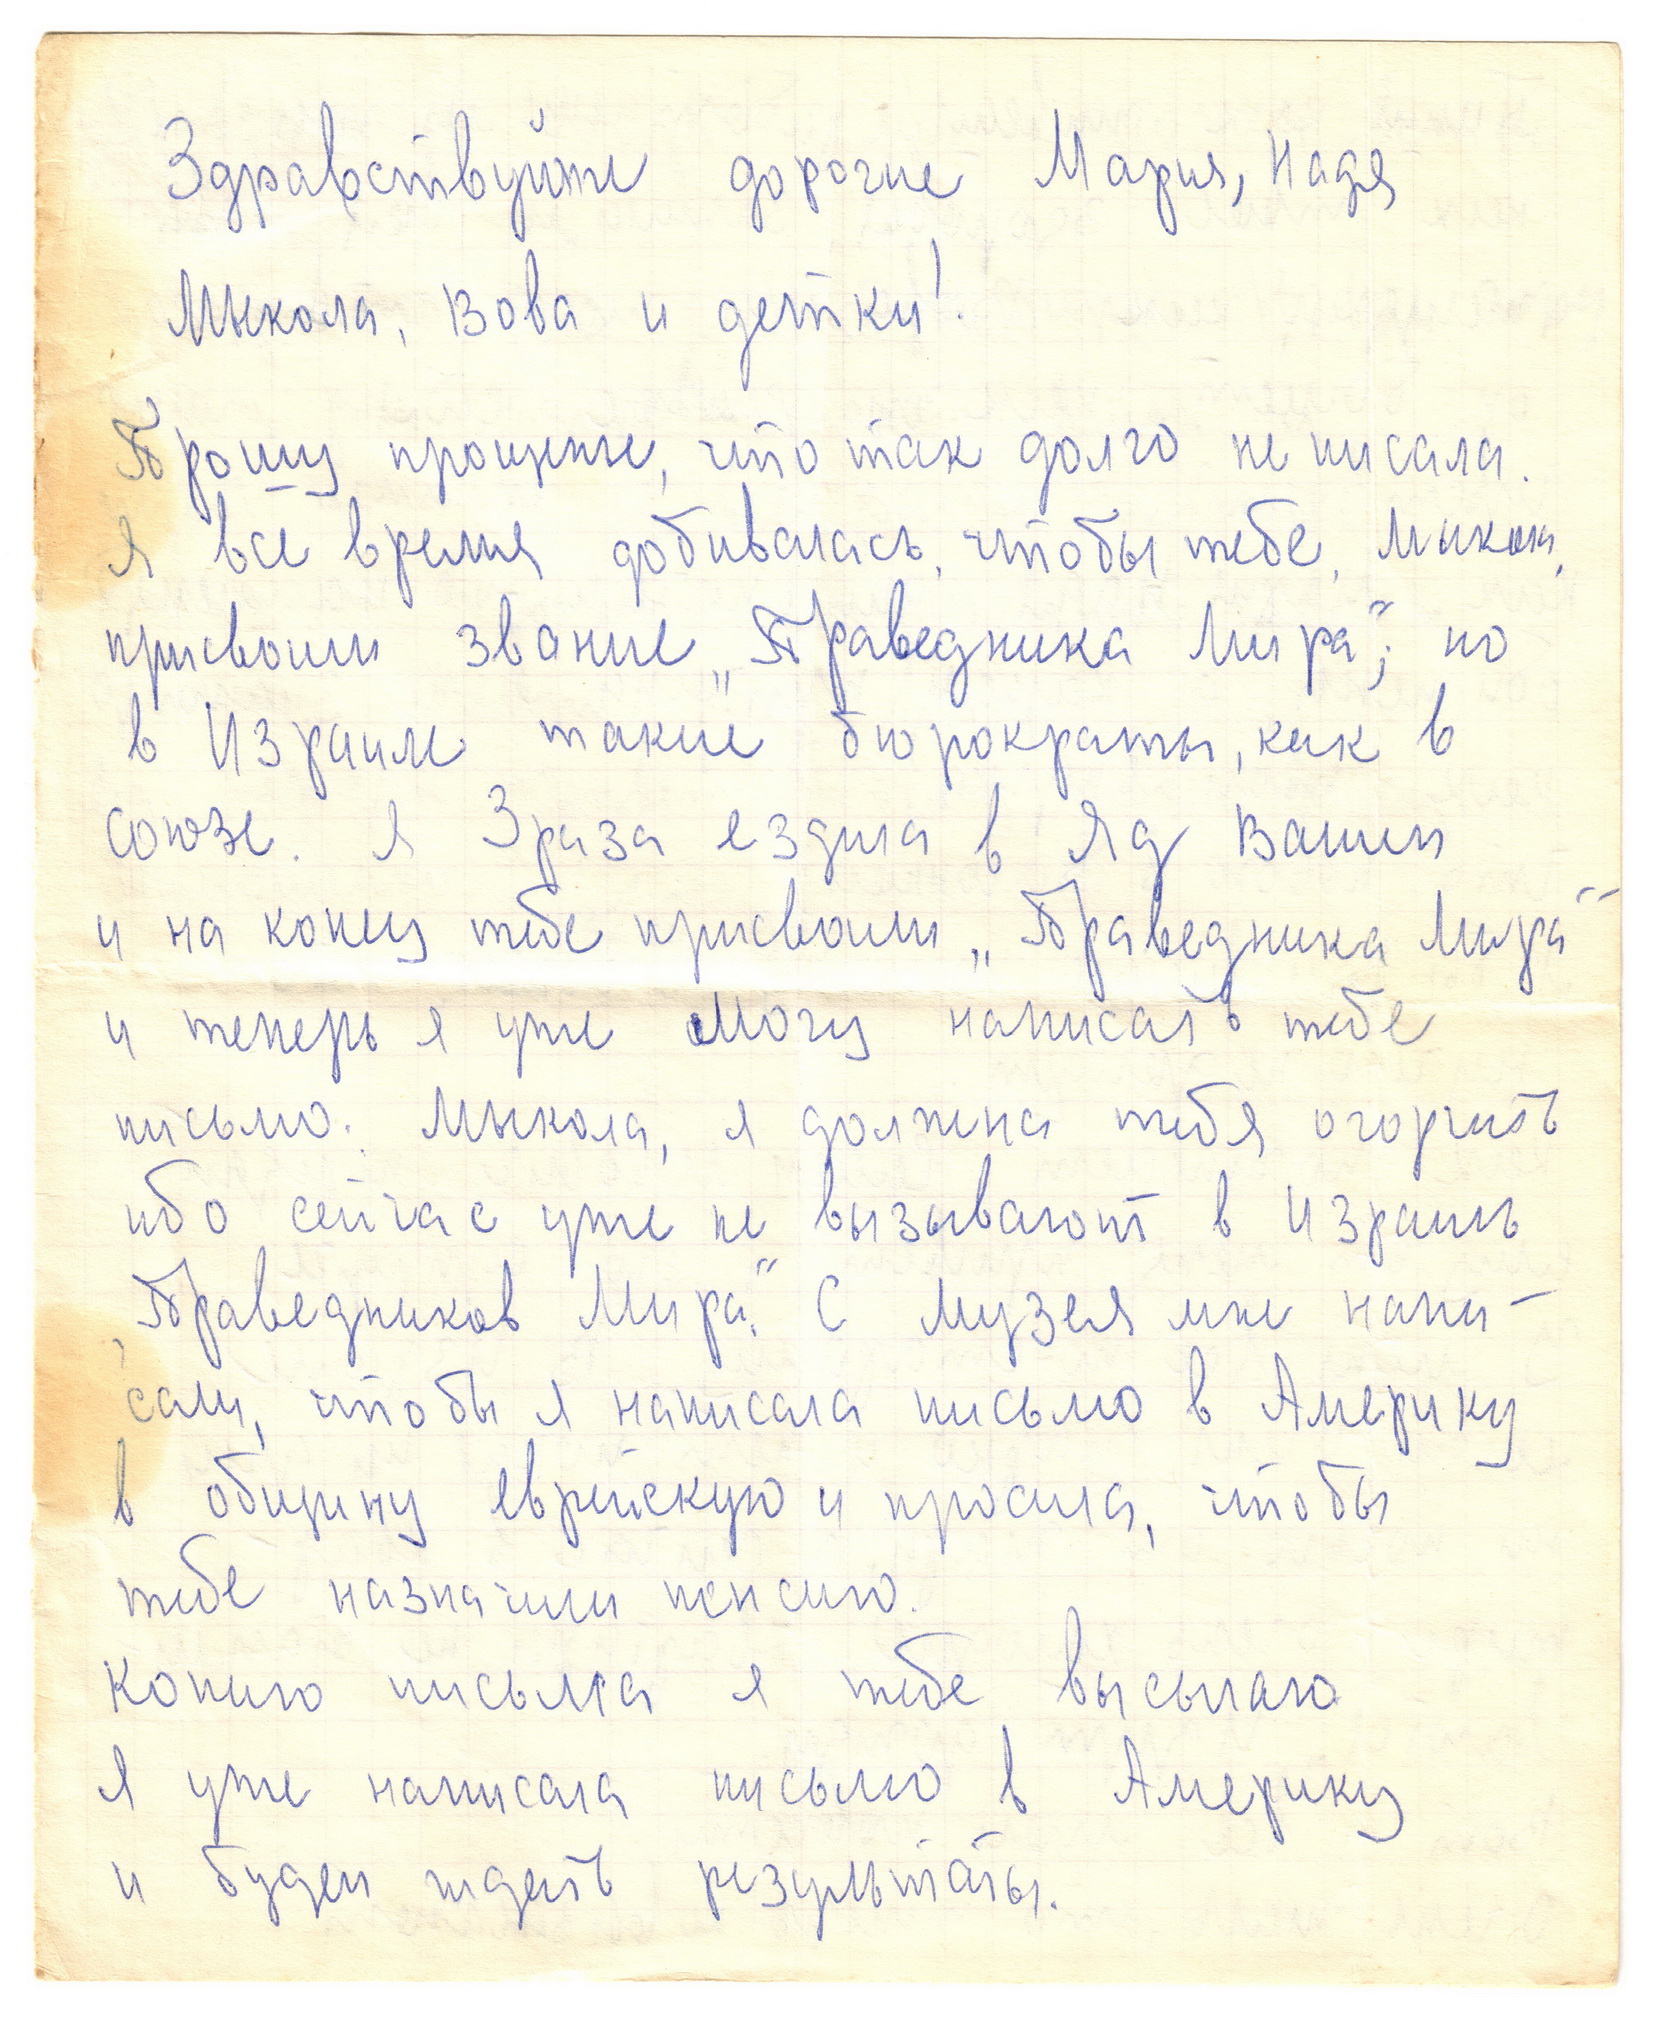 Здравствуйте дорогие Мария, Надя
Мыкола, Вова и детки!
Прошу прощение, что так долго не писала.
Я все время добивалась, чтобы тебе, Микола,
присвоили звание „Праведника Мира", но
в Израиле такие бюрократы, как в
союзе. Я 3 раза ездила в Яд Вашем
и на конец тебе присвоили „Праведника Мира"
и теперь я уже могу написать тебе
письмо. Мыкола, я должна тебя огорчить
ибо сейчас уже не вызывают в Израиль
„Праведников Мира." С музея мне напи-
сали, чтобы я написала письмо в Америку
в общину еврейскую и просила, чтобы
тебе назначили пенсию.
Копию письма я тебе высылаю
Я уже написала письмо в Америку
и будем ждать результаты.